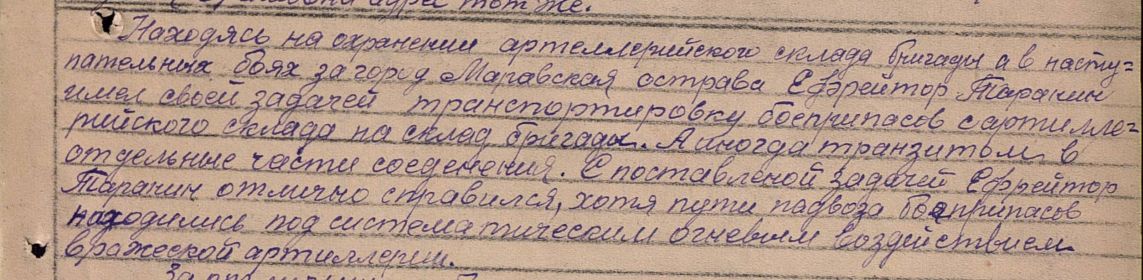 адрес тот же.
Находясь на охранении артеллерийского склада бригады а в насту=
пательных боях за город Маравская острава Ефрейтор Таранин
имел своей задачей транспортировку боеприпасов с артилле=
рийского склада на склад бригады. А иногда транзитом в
отдельные части соеденения. С поставленой задачей Ефрейтор
Таранин отлично справился, хотя пути падвоза боеприпасов
находились под систематическим огневым воздействием
вражеской артиллерии.